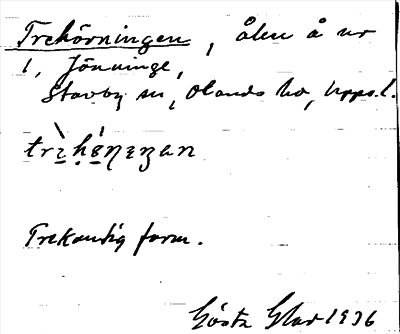 Trehörningen, ålen å nr
1, Jönninge,
Stavby sn, Olands hd, Upps.l.
trì̱ḥɵ́ŋɩŋan
Trekantig form.
Gösta 1936